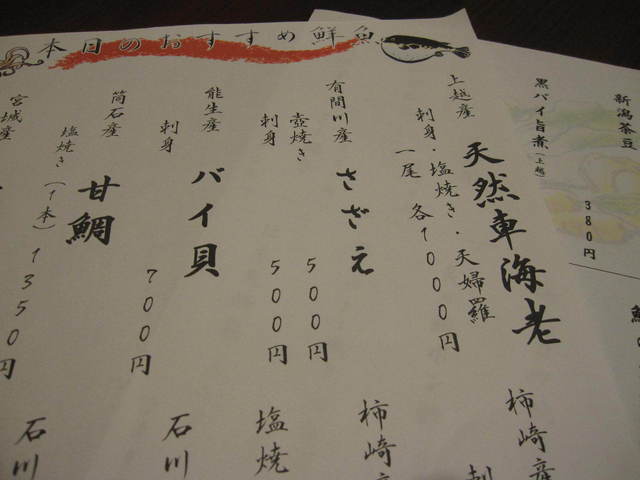 本日のおすすめ鮮魚
新潟茶豆
380円
黒バイ旨煮(上越)
上越産
天然車海老
刺身・塩焼き・天婦羅
一尾 各1000円
有間川産
さざえ
壺焼き 500円
刺身 500円
能生産
バイ貝
刺身 700円
筒石産
甘鯛
塩焼き(1本) 1350円
宮城産
柿崎産
刺
柿崎
塩焼
石川
石川